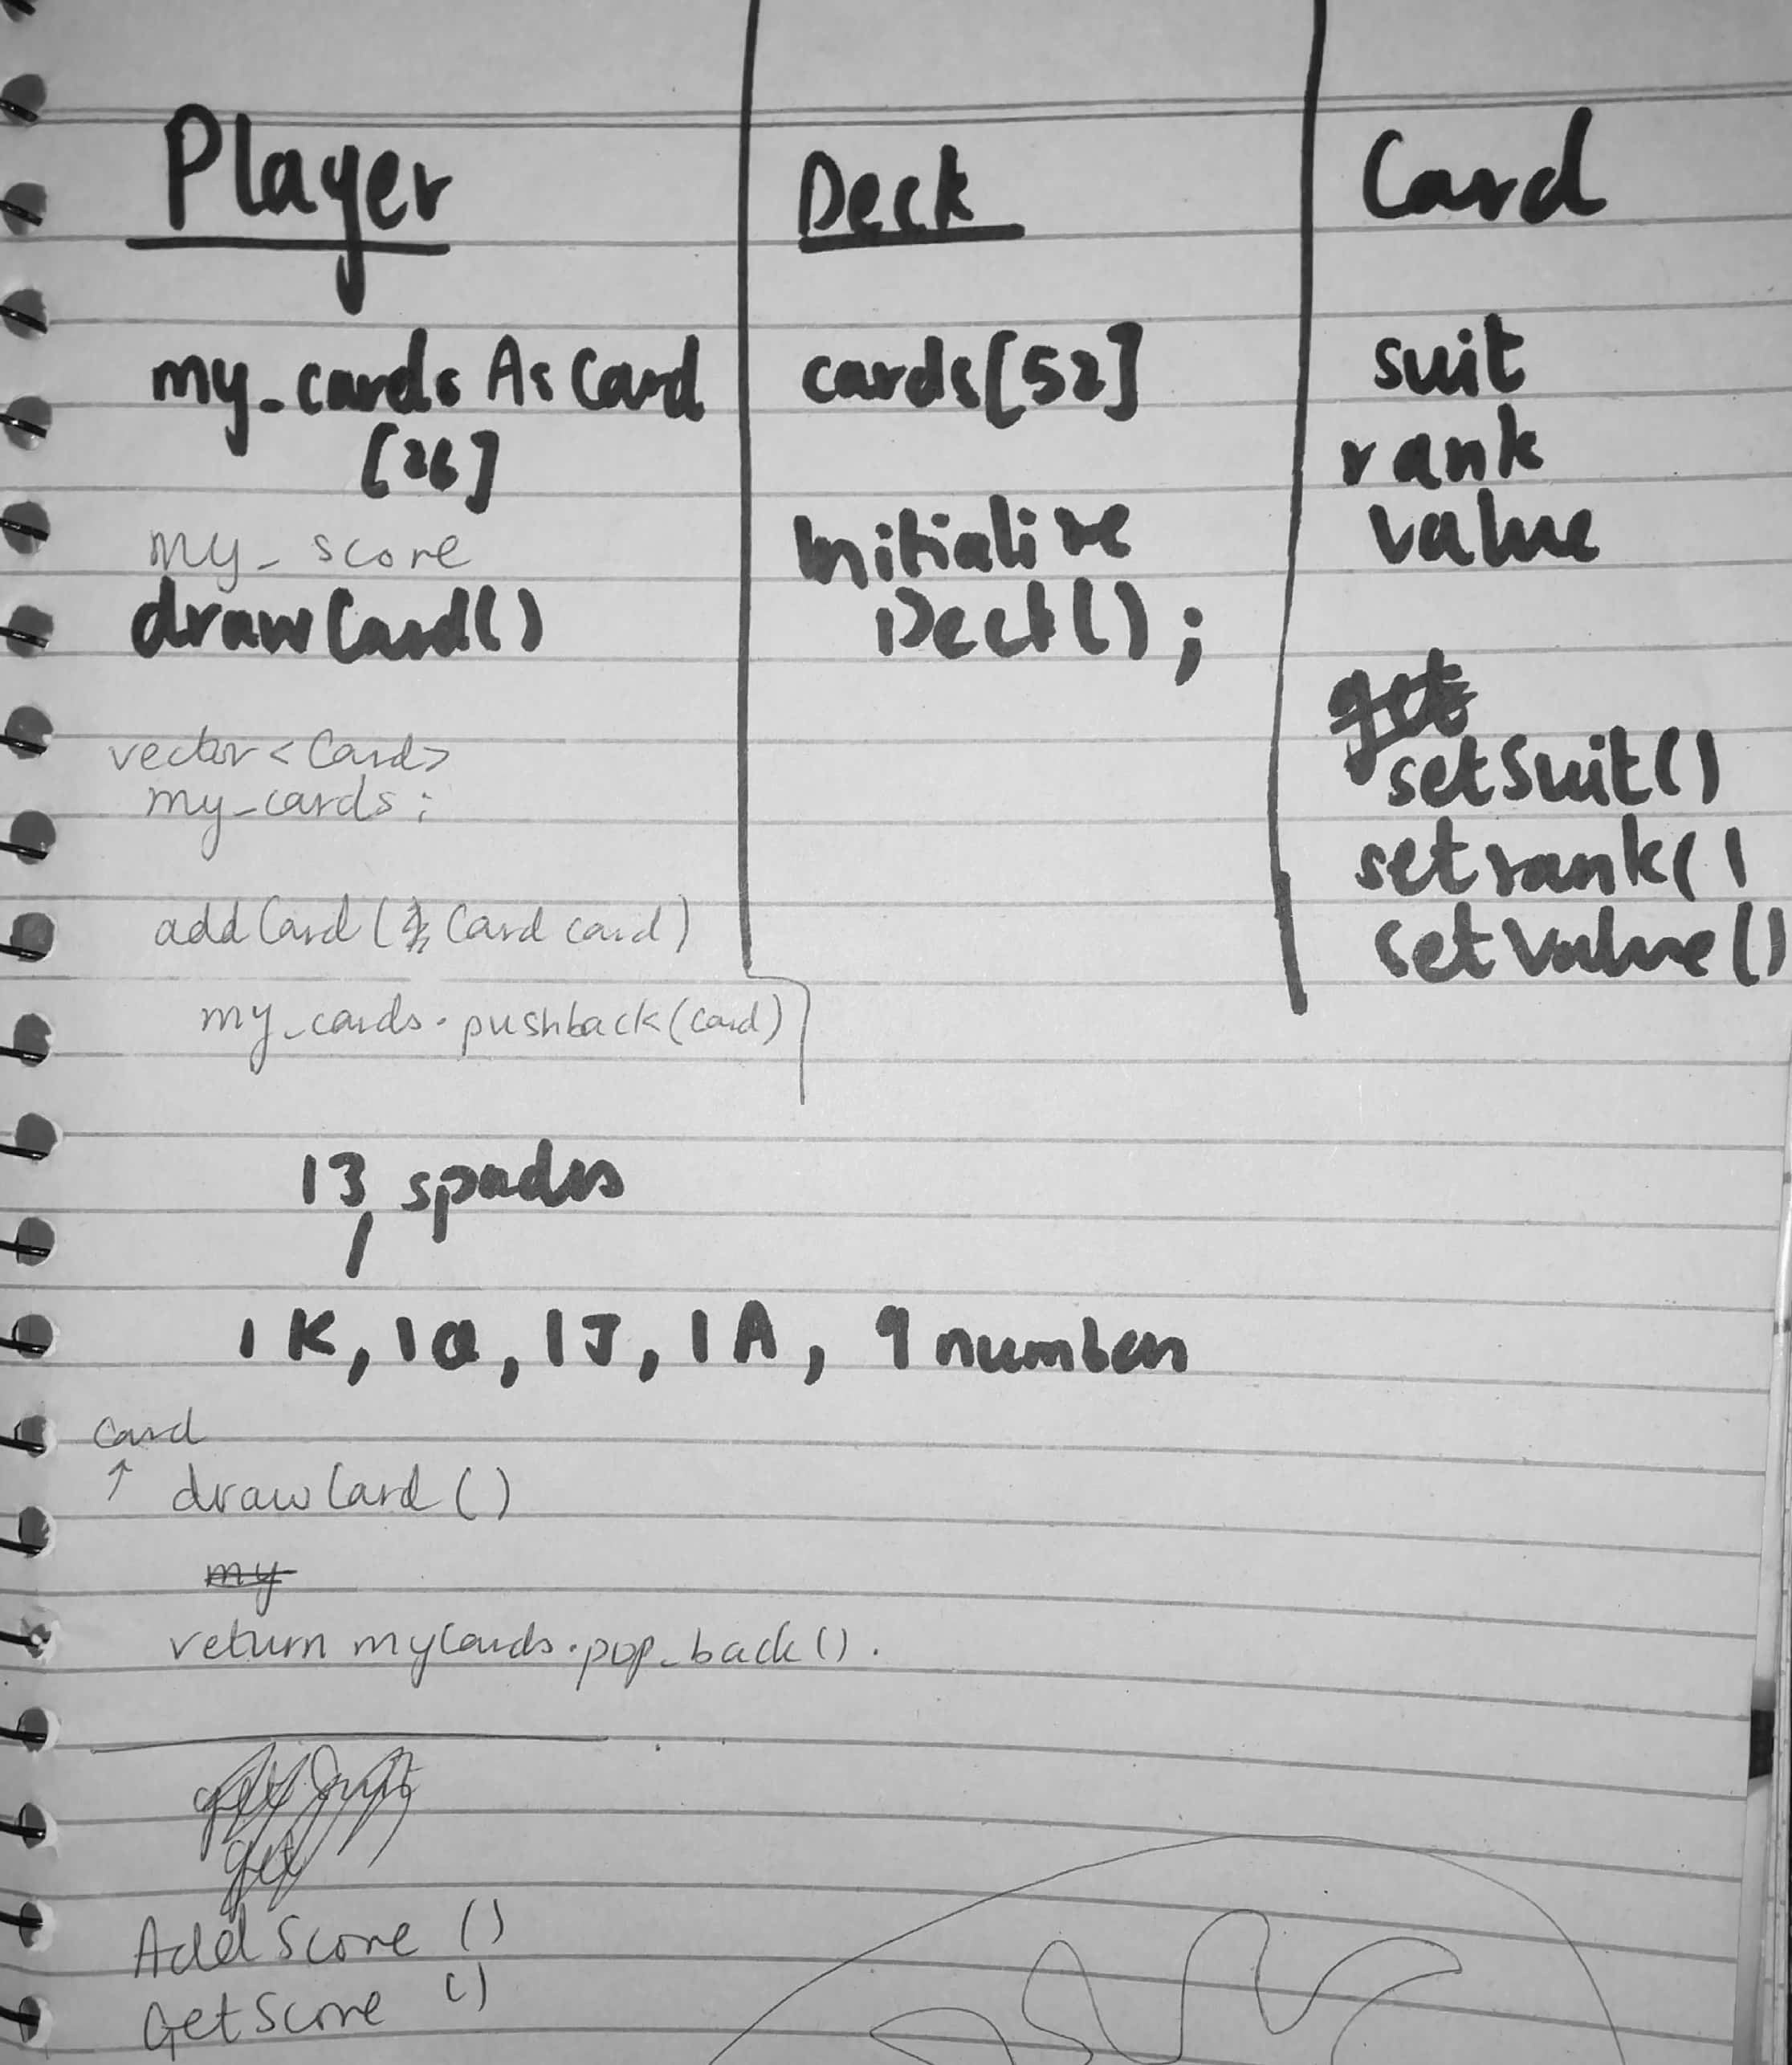 Player
my_cards As Card
[26]
my_ score
drawCard()
vector<Card>
my_cards;
addCard( Card card)
my_cards.pushback(card)
Deck
cards[52]
Initialize
Deck();
Card
suit
rank
value
get
setSuit()
setrank()
setValue()
13 spades
1K, 1Q, 1J, 1A, 9 numbers
Card
↑ drawCard()
my
return myCards.pop_back().
Add Score ()
Get Score ()